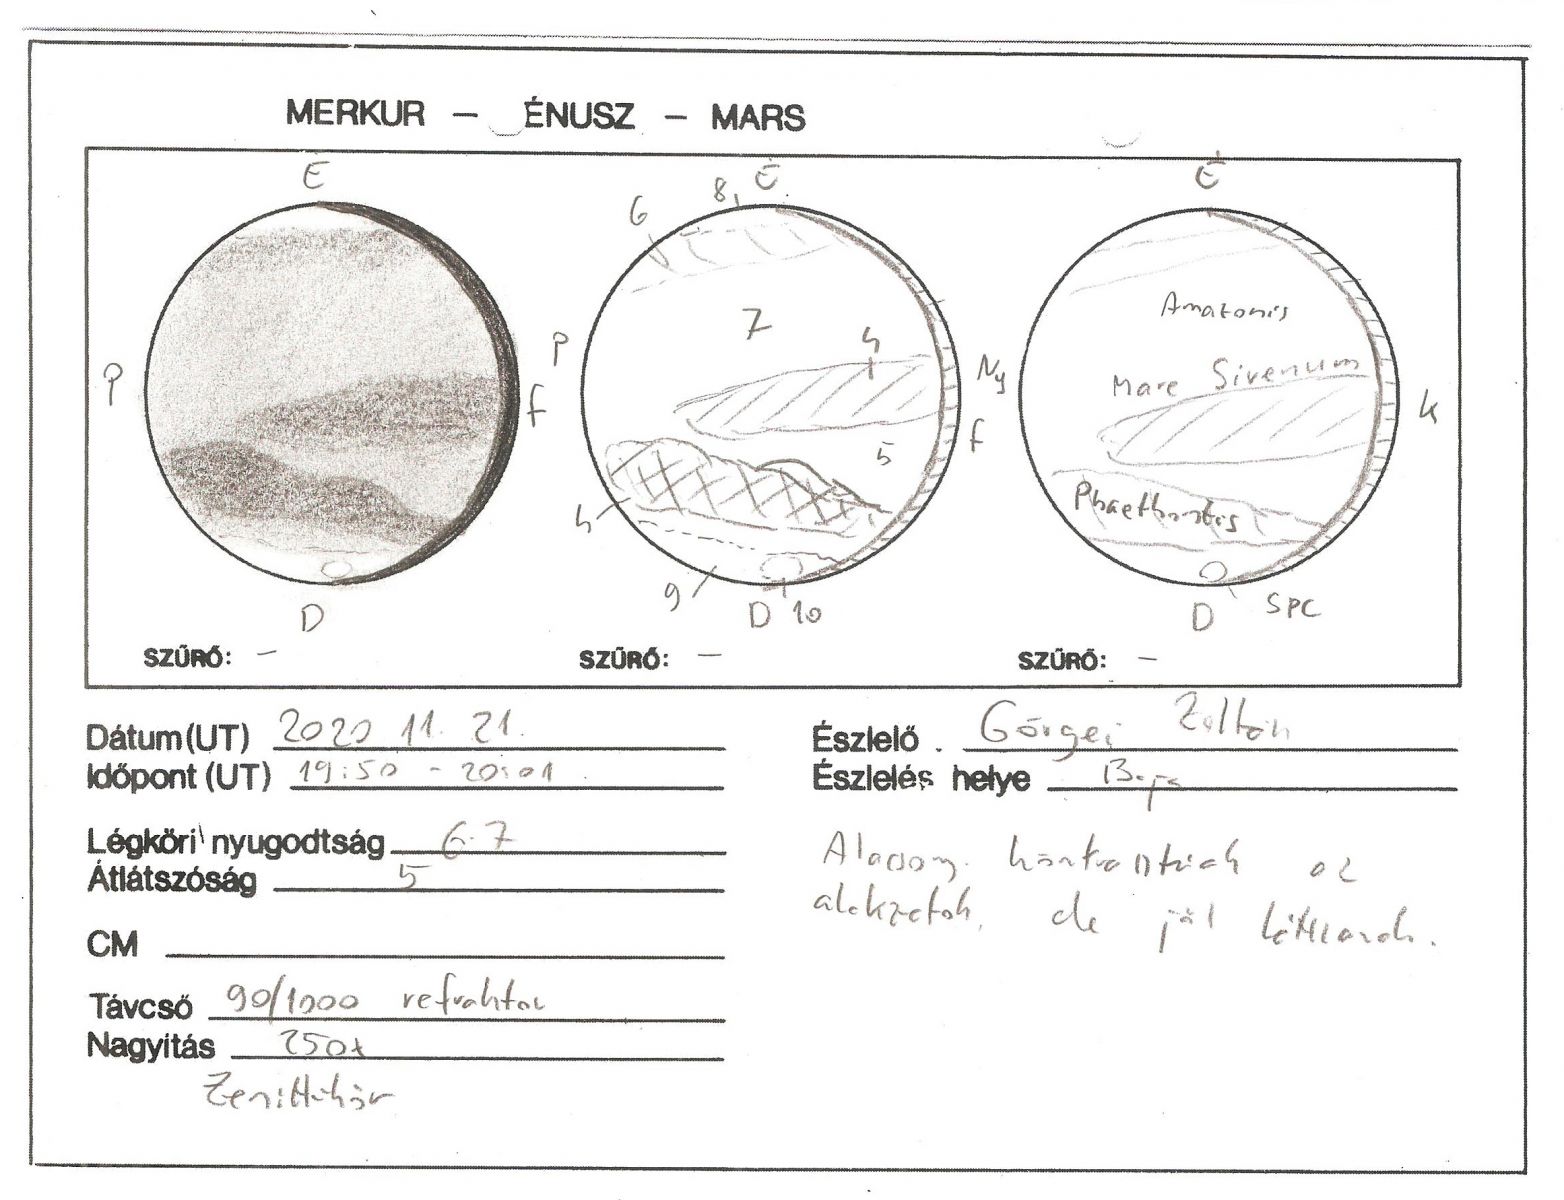 MERKUR – ÉNUSZ – MARS
É
8 É
6
É
Amazonis
7
4
P
P
Ny
Mare Sirenum
f
f
K
5
Phaethontis
4
9
D
D 10
D
SPC
SZŰRŐ: –
SZŰRŐ: –
SZŰRŐ: –
Dátum (UT) 2020 11. 21.
Időpont (UT) 19:50 - 20:01
Légköri nyugodtság 6-7
Átlátszóság 5
CM
Távcső 90/1000 refraktor
Nagyítás 250x
Zenittükör
Észlelő Görgei Zoltán
Észlelés helye
Alacsony kontrasztúak az
alakzatok, de jól látszanak.